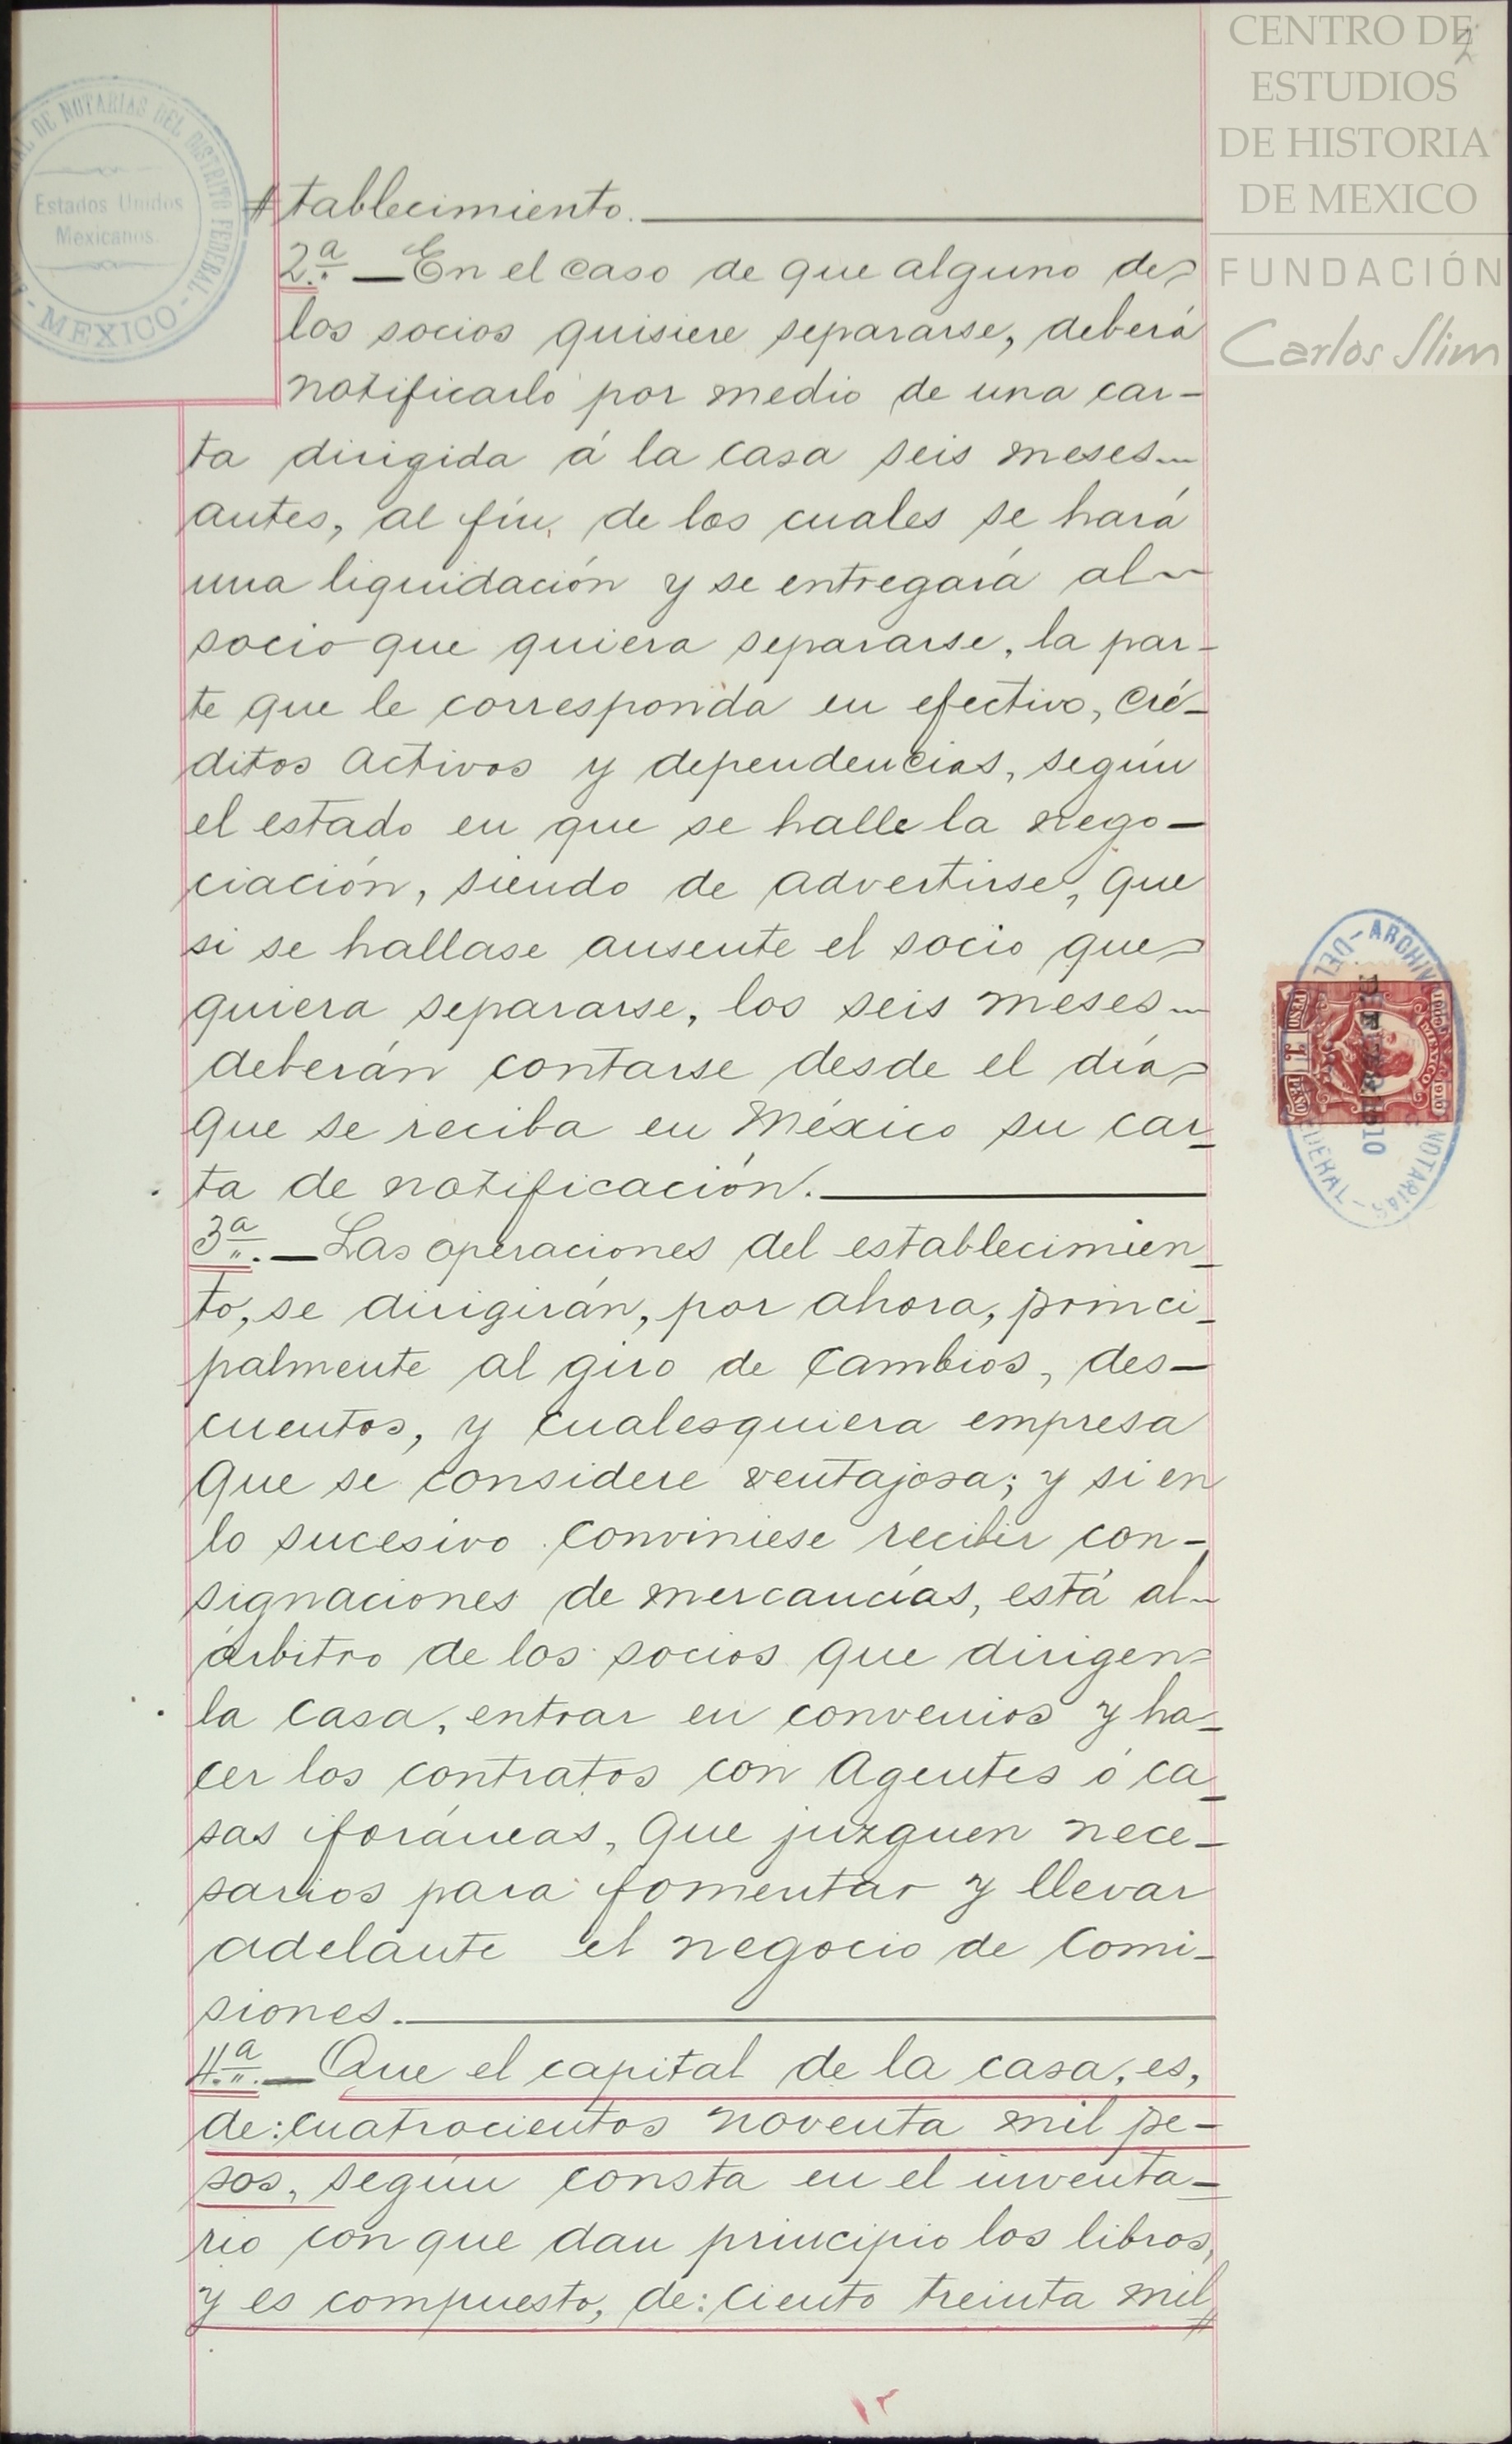 CENTRO DE
ESTUDIOS
DE HISTORIA
DE MEXICO
FUNDACIÓN
Carlos Slim
2
DE NOTARIAS DEL DISTRITO FEDERAL
Estados Unidos
Mexicanos.
- MEXICO -
tablecimiento.
2ª. — En el caso de que alguno de
los socios quisiere separarse, deberá
notificarlo por medio de una car-
ta dirigida á la casa seis meses
antes, al fin, de los cuales se hará
una liquidación y se entregará al
socio que quiera separarse, la par-
te que le corresponda en efectivo, cré-
ditos activos y dependencias, según
el estado en que se halle la nego-
ciación, siendo de advertirse, que
si se hallase ausente el socio que
quiera separarse, los seis meses
deberán contarse desde el día
que se reciba en México su car-
ta de notificación.
3ª. — Las operaciones del establecimien-
to, se dirigirán, por ahora, princi-
palmente al giro de cambios, des-
cuentos, y cualesquiera empresa
que se considere ventajosa; y si en
lo sucesivo conviniese recibir con-
signaciones de mercancías, está al
árbitro de los socios que dirigen
la casa, entrar en convenios y ha-
cer los contratos con Agentes ó ca-
sas foráneas, que juzguen nece-
sarios para fomentar y llevar
adelante el negocio de comi-
siones.
4ª. — Que el capital de la casa, es,
de: cuatrocientos noventa mil pe-
sos, según consta en el inventa-
rio con que dan principio los libros,
y es compuesto, de: ciento treinta mil
DEL - ARCHIV
NOTARIAS
1 PESO
MEXICO
1910